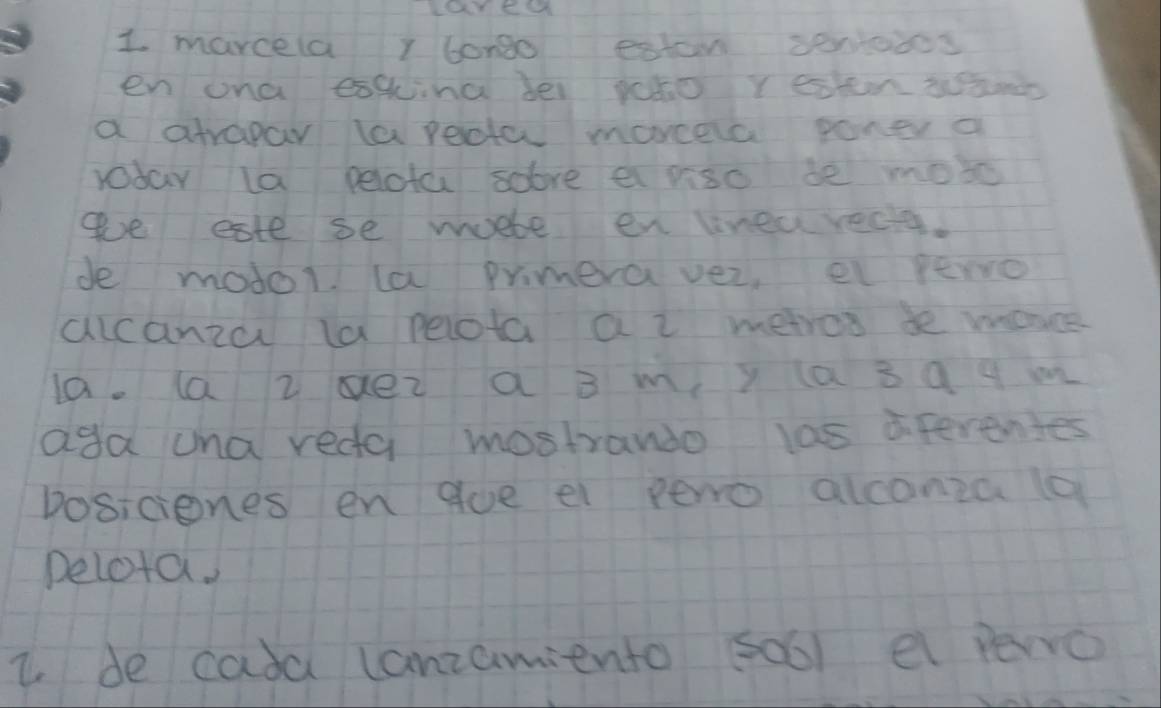 tarea
1 marcela y bongo estan sentados
en una esquina del patio y estan
a atrapar la peota marcela poner a
rodar la pelota sobre el piso de modo
que este se muebe en linea recta.
de modo1. la primera vez, el perro
alcanza la pelota a 2 metros de marce
la. la 2 vez a 3 m, y la 3 a 4 m
aga una recta mostrando las diferentes
posiciones en que el perro alcanza la
pelota.
2 de cada lanzamiento el perro